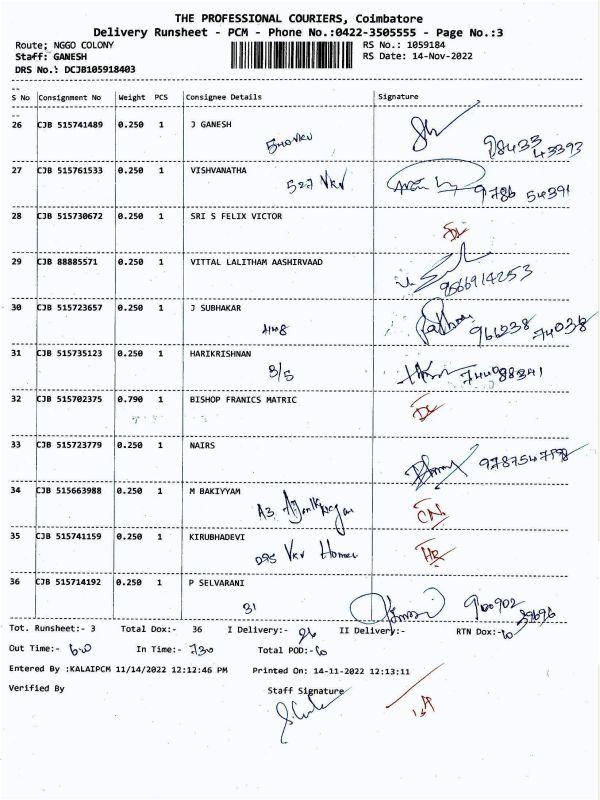 THE PROFESSIONAL COURIERS, Coimbatore
Delivery Runsheet - PCM - Phone No.:0422-3505555 - Page No.:3
Route; NGGO COLONY RS No.: 1059184
Staff: GANESH RS Date: 14-Nov-2022
DRS No.: DCJB105918403
--
S No Consignment No Weight PCS Consignee Details Signature
--
26 CJB 515741489 0.250 1 J GANESH
540 VKV 98433
43393
27 CJB 515761533 0.250 1 VISHVANATHA
527 VKV 9786 54391
28 CJB 515730672 0.250 1 SRI S FELIX VICTOR
DL
29 CJB 88885571 0.250 1 VITTAL LALITHAM AASHIRVAAD
9566914253
30 CJB 515723657 0.250 1 J SUBHAKAR
448 966238 74038
31 CJB 515735123 0.250 1 HARIKRISHNAN
3/5 7440988341
32 CJB 515702375 0.790 1 BISHOP FRANICS MATRIC
DL
33 CJB 515723779 0.250 1 NAIRS
34 CJB 515663988 0.250 1 M BAKIYYAM
A3
35 CJB 515741159 0.250 1 KIRUBHADEVI
VKV Homes
36 CJB 515714192 0.250 1 P SELVARANI
31
Tot. Runsheet:- 3 Total Dox:- 36 I Delivery:- II Delivery:- RTN Dox:-
Out Time:- In Time:- 730 Total POD:-
Entered By :KALAIPCM 11/14/2022 12:12:46 PM Printed On: 14-11-2022 12:13:11
Verified By Staff Signature